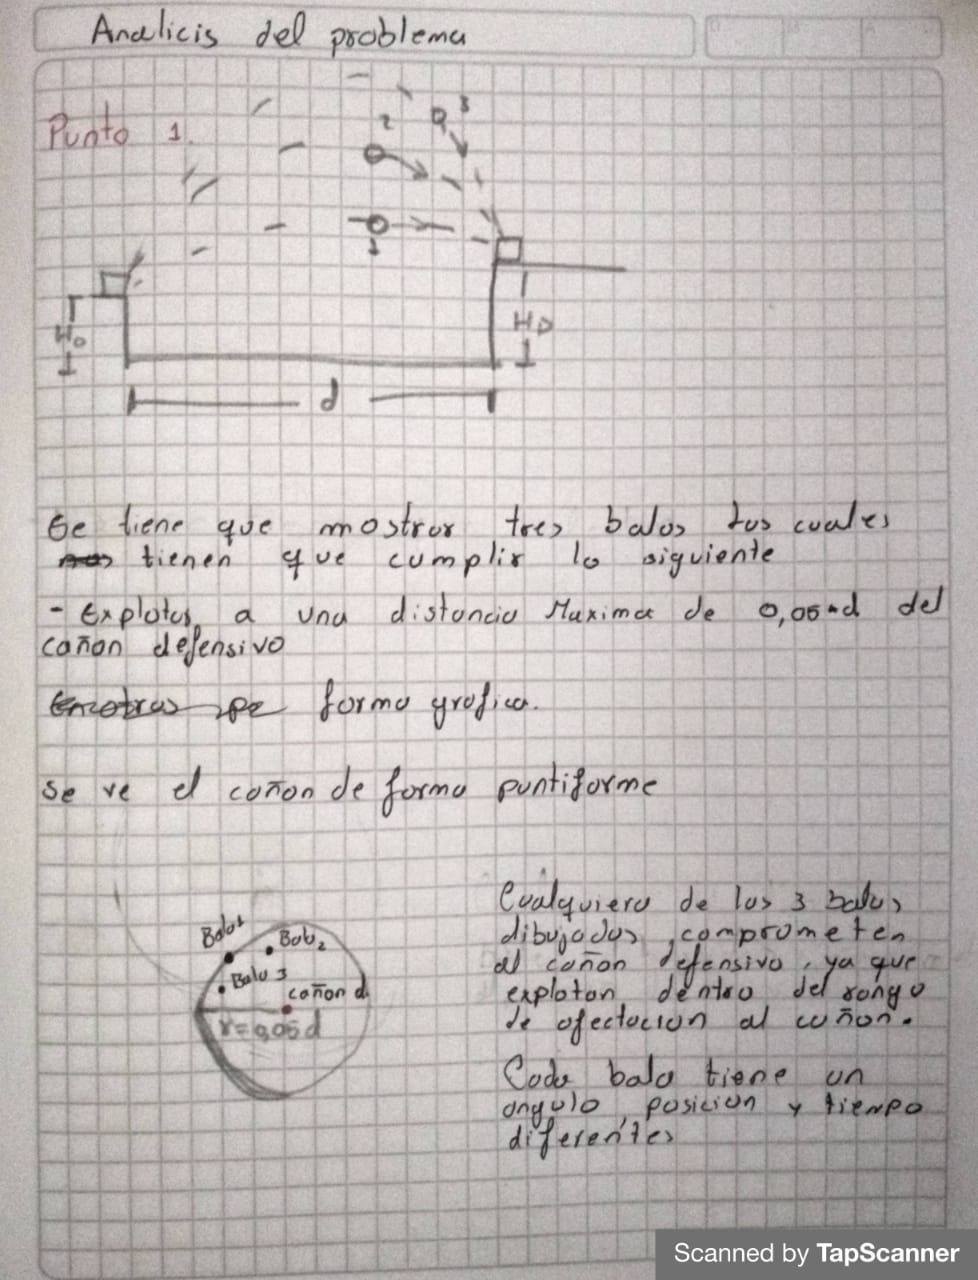 Analicis del problema
Punto 1.
2
3
1
Ho
HD
d
Se tiene que mostrar tres balas las cuales
tienen que cumplir lo siguiente
- Explotas a una distancia Maxima de 0,05*d del
cañon defensivo
forma grafica.
Se ve el cañon de forma puntiforme
Bala1
Bala2
Bala 3
cañon d.
r=0,05d
Cualquiera de las 3 balas
dibujadas, comprometen
al cañon defensivo, ya que
explotan dentro del rango
de afectacion al cañon.
Cada bala tiene un
angulo, posicion y tiempo
diferentes
Scanned by TapScanner